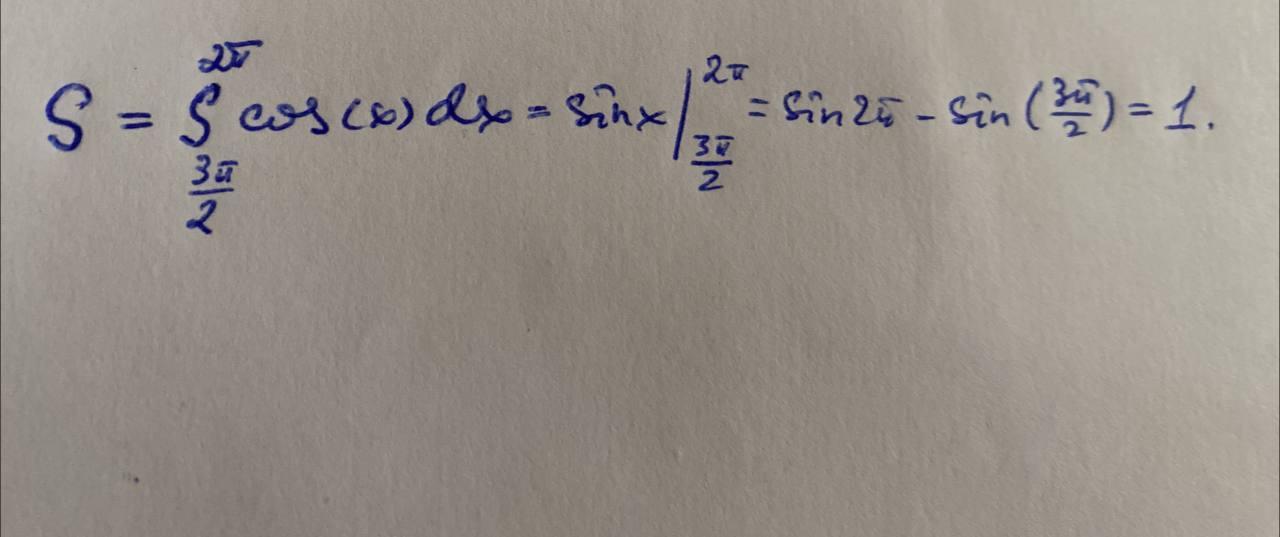 S = ∫_{3π/2}^{2π} cos(x) dx = sin x |_{3π/2}^{2π} = sin 2π - sin (3π/2) = 1.